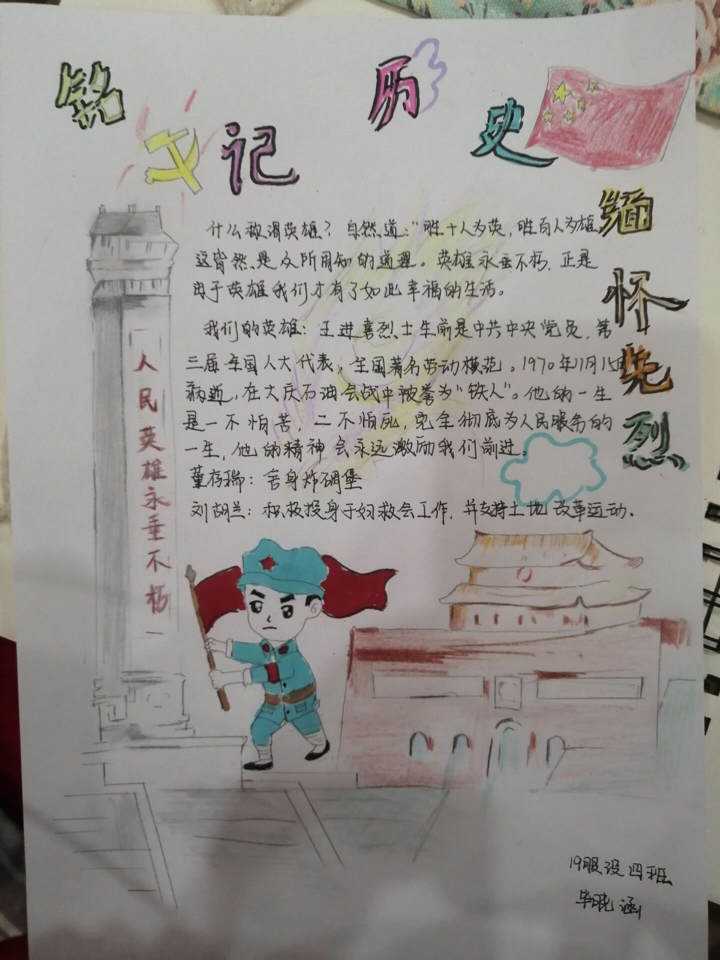 铭记历史
缅怀先烈
什么叫得英雄？自然道："胜十人为英，胜百人为雄，
这皆然是众所周知的道理。英雄永垂不朽，正是
由于英雄我们才有了如此幸福的生活。
我们的英雄：王进喜烈士生前是中共中央党员，第
三届全国人大代表，全国著名劳动模范。1970年11月15日
病逝，在大庆石油会战中被誉为"铁人"。他的一生
是一不怕苦，二不怕死，完全彻底为人民服务的
一生，他的精神会永远激励我们前进。
董存瑞：舍身炸碉堡
刘胡兰：积极投身于妇救会工作，并支持土地改革运动。
人民英雄永垂不朽
19服设四班
毕晓涵